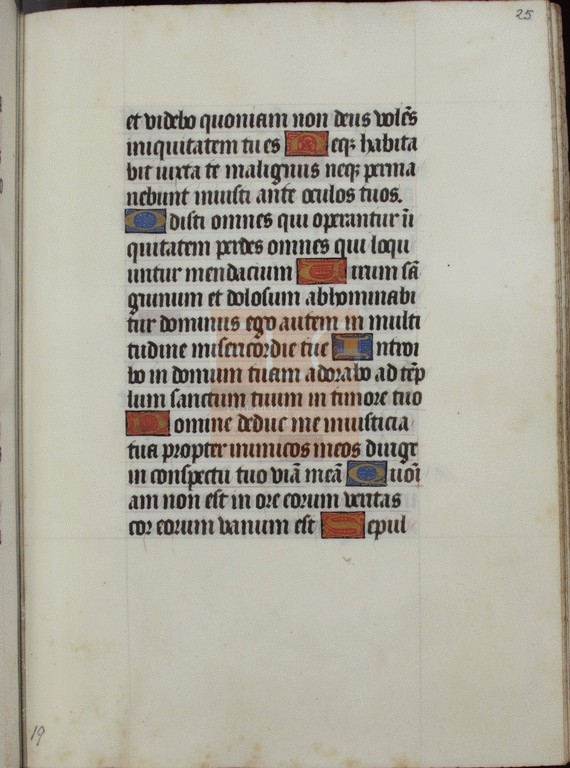 25
et videbo quoniam non deus volēs
iniquitatem tu es Neqꝫ habita
bit iuxta te malignus neqꝫ perma
nebunt iniusti ante oculos tuos.
Odisti omnes qui operantur ī
quitatem perdes omnes qui loqu
untur mendacium Uirum sā
guinum et dolosum abhominabi
tur dominus ego autem in multi
tudine misericordie tue Introi
bo in domum tuam adorabo ad tēp
lum sanctum tuum in timore tuo
Domine deduc me iniusticia
tua propter inimicos meos dirige
in conspectu tuo viā meā Quoī
am non est in ore eorum veritas
cor eorum vanum est Sepul
19